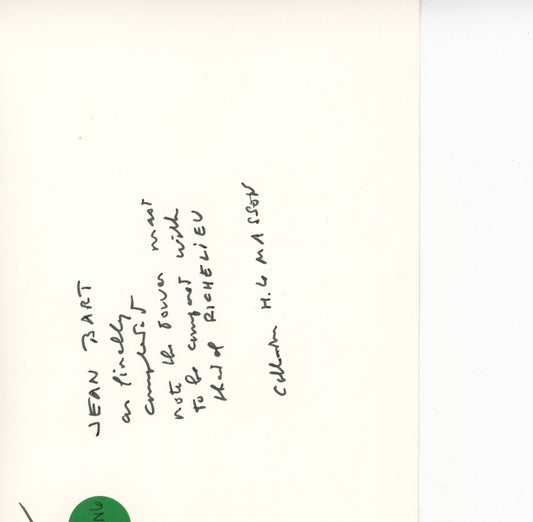 JEAN BART
as finally
completed
note the tower mast
to be compared with
that of RICHELIEU
Collection H. Le MASSON
N6